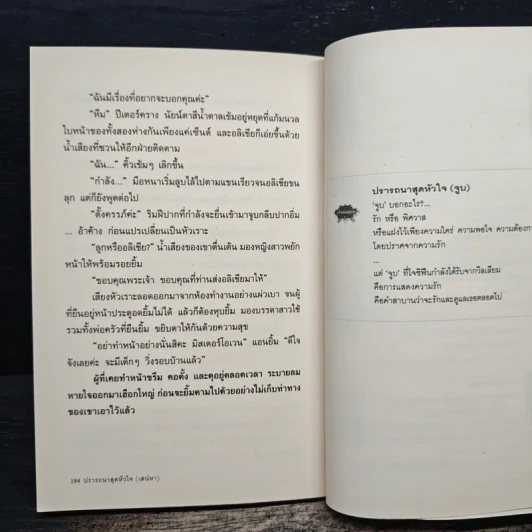 “ฉันมีเรื่องที่อยากจะบอกคุณค่ะ”
“หืม” ปีเตอร์คราง นัยน์ตาสีน้ำตาลเข้มอยู่หยุดที่แก้มนวล
ใบหน้าของทั้งสองห่างกันเพียงแค่เซ็นต์ และอลิเซียก็เอ่ยขึ้นด้วย
น้ำเสียงที่ชวนให้อีกฝ่ายติดตาม
“ฉัน...” คิ้วเข้มๆ เลิกขึ้น
“กำลัง...” มือหนาเริ่มลูบไล้ไปตามแขนเรียวจนอลิเซียขน
ลุก แต่ก็ยังพูดต่อไป
“ตั้งครรภ์ค่ะ” ริมฝีปากที่กำลังจะยื่นเข้ามาจูบกลีบปากอิ่ม
... อ้าค้าง ก่อนแปรเปลี่ยนเป็นหัวเราะ
“ลูกหรืออลิเซีย?” น้ำเสียงของเขาตื่นเต้น มองหญิงสาวพยัก
หน้าให้พร้อมรอยยิ้ม
“ขอบคุณพระเจ้า ขอบคุณที่ท่านส่งอลิเซียมาให้”
เสียงหัวเราะลอดออกมาจากห้องทำงานอย่างแผ่วเบา จนผู้
ที่ยืนอยู่หน้าประตูอดยิ้มไม่ได้ แล้วก็ต้องหุบยิ้ม มองบรรดาสาวใช้
รวมทั้งพ่อครัวที่ยืนยิ้ม ขยิบตาให้กันด้วยความสุข
“อย่าทำหน้าอย่างนั้นสิคะ มิสเตอร์โอเวน” แอนยิ้ม “ดีใจ
จังเลยค่ะ จะมีเด็กๆ วิ่งรอบบ้านแล้ว”
ผู้ที่เคยทำหน้าขรึม คอตั้ง และดุอยู่ตลอดเวลา ระบายลม
หายใจออกมาเฮือกใหญ่ ก่อนจะยิ้มตามไปด้วยอย่างไม่เก็บท่าทาง
ของเขาเอาไว้แล้ว
194 ปรารถนาสุดหัวใจ (เสน่หา)
ปรารถนาสุดหัวใจ (จูบ)
‘จูบ’ บอกอะไร?...
รัก หรือ พิศวาส
หรือแฝงไว้เพียงความใคร่ ความพอใจ ความต้องการ
โดยปราศจากความรัก
...
แต่ ‘จูบ’ ที่โจซิฟินกำลังได้รับจากวิลเลียม
คือการแสดงความรัก
คือคำสาบานว่าจะรักและดูแลเธอตลอดไป